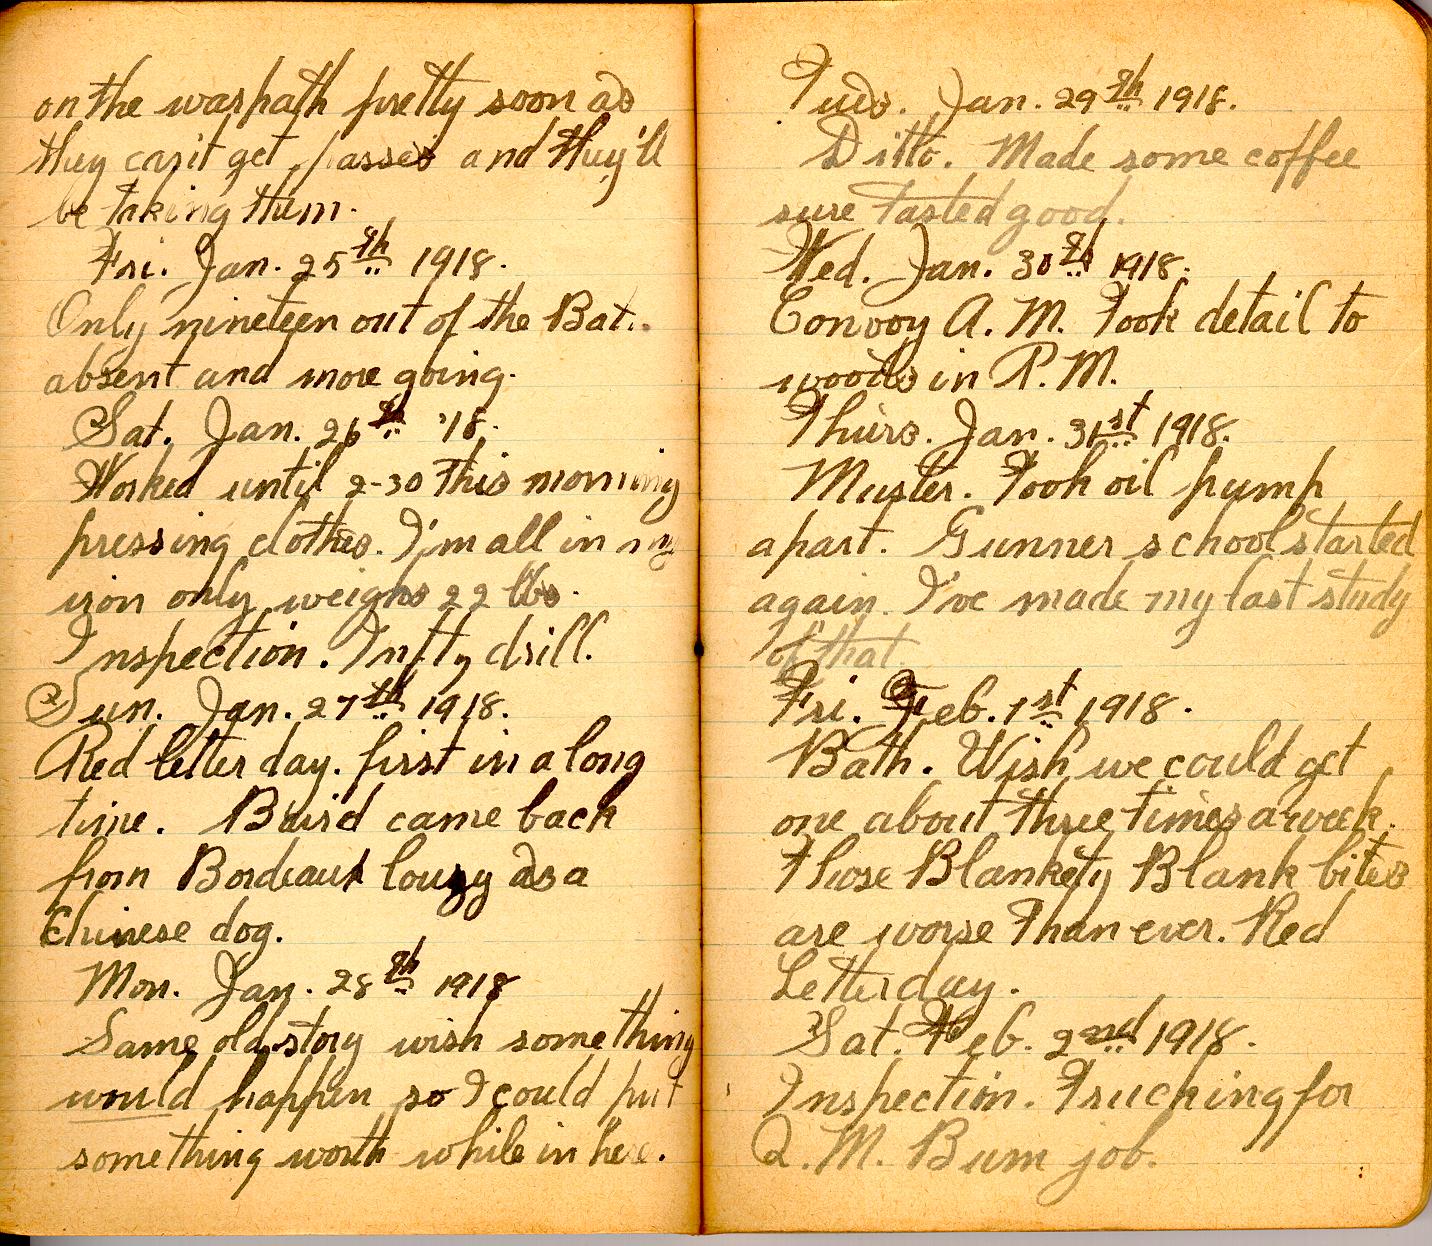 on the warpath pretty soon as
they can't get passes and they'll
be taking them.
Fri. Jan. 25th 1918.
Only nineteen out of the Bat.
absent and more going.
Sat. Jan. 26th '18.
Worked until 2-30 this morning
pressing clothes. I'm all in my
iron only weighs 22 lbs.
Inspection. Infty drill.
Sun. Jan. 27th 1918.
Red letter day. first in a long
time. Baird came back
from Bordeaux lousy as a
Chinese dog.
Mon. Jan. 28th 1918
Same old story wish something
would happen so I could put
something worth while in here.
Tues. Jan. 29th 1918.
Ditto. Made some coffee
sure tasted good.
Wed. Jan. 30th 1918.
Convoy A.M. Took detail to
woods in P.M.
Thurs. Jan. 31st 1918.
Muster. Took oil pump
apart. Gunner school started
again. I've made my last study
of that.
Fri. Feb. 1st 1918.
Bath. Wish we could get
one about three times a week.
Those Blankety Blank bites
are worse than ever. Red
Letter day.
Sat. Feb. 2nd 1918.
Inspection. Trucking for
Q.M. Bum job.